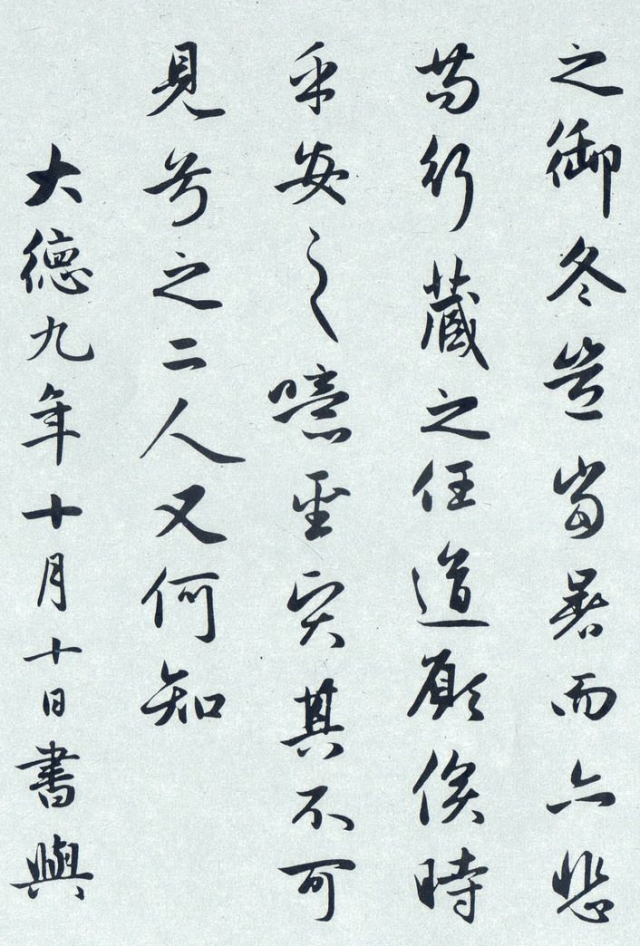 之御冬豈當暑而亦悲
苟行藏之任道顧俟時
乎安之噫聖賢其不可
見兮之二人又何知
大德九年十月十日書與